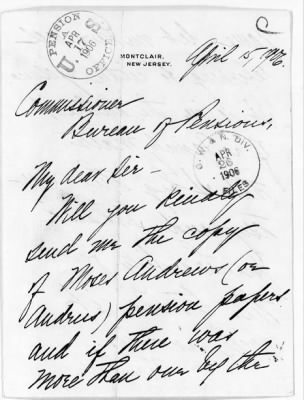 U.S. PENSION OFFICE
APR
17
1906
MONTCLAIR,
NEW JERSEY.
April 15, 1906.
Commissioner
Bureau of Pensions,
O. W. & N. DIV.
APR
26
1906
My dear Sir –
Will you kindly
send me the copy
of Moses Andrews (or
Andrus) pension papers
and if there was
more than one by the